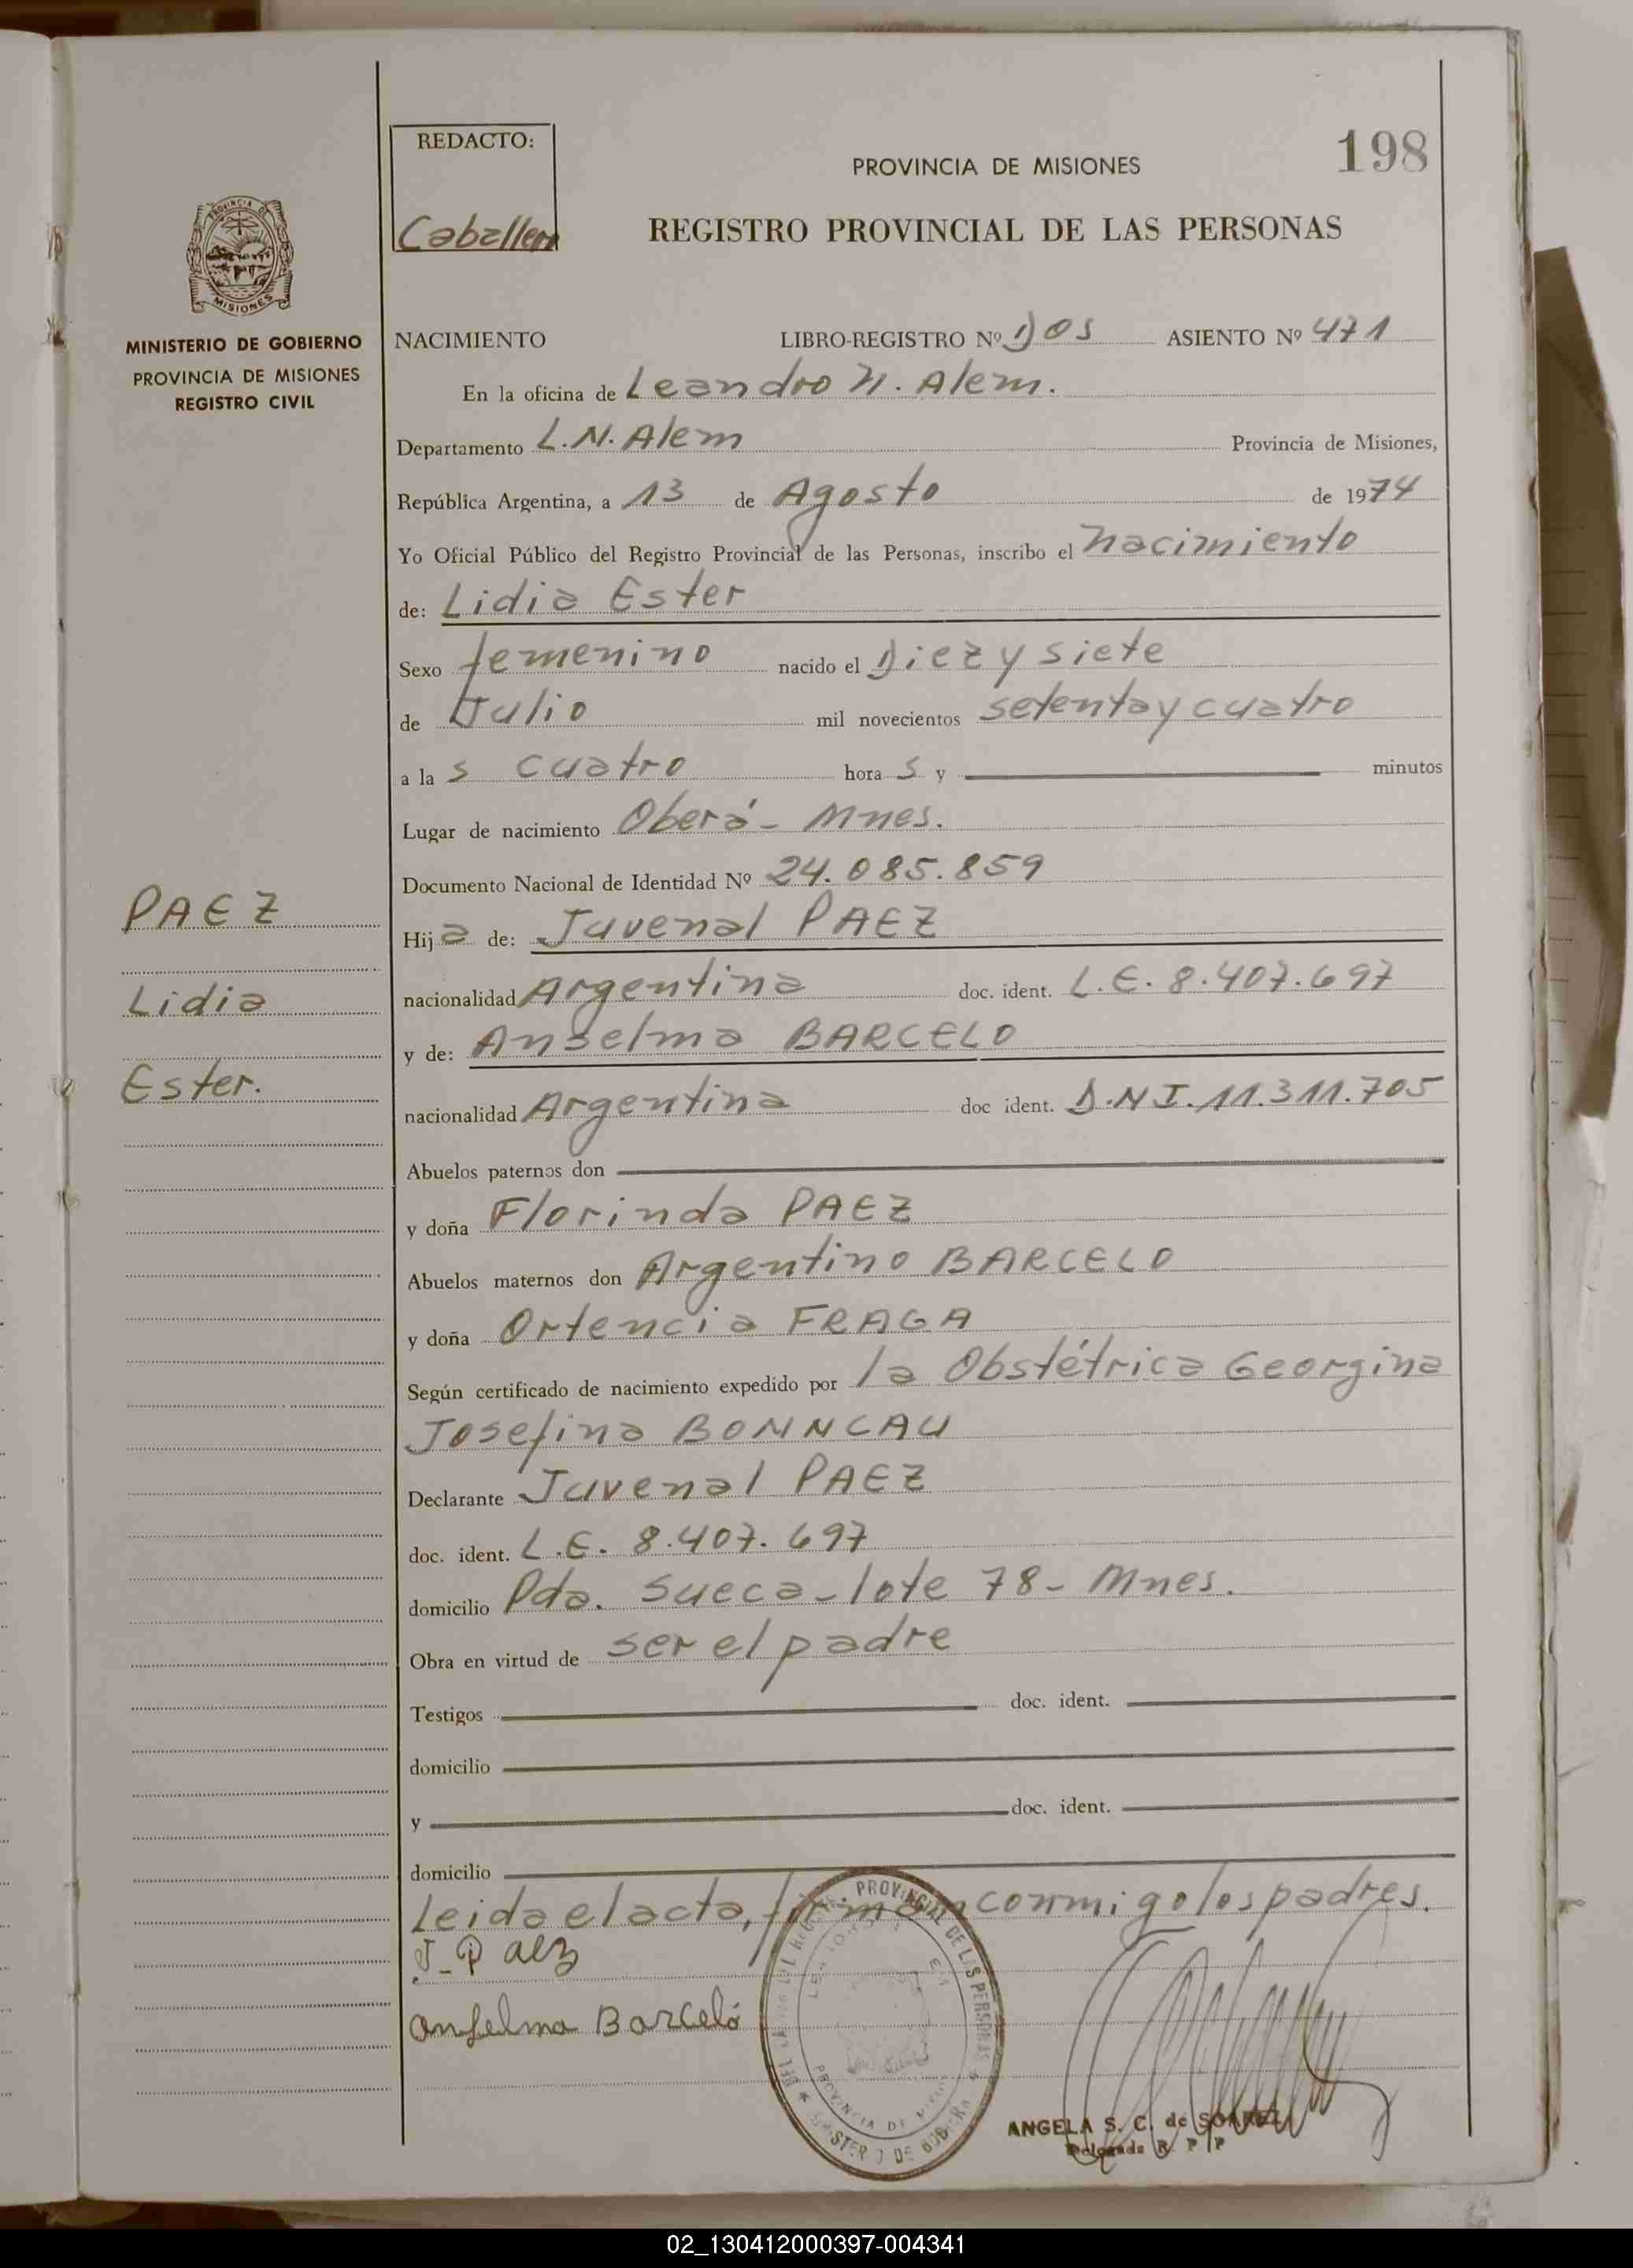 REDACTO:
Caballero
198
PROVINCIA DE MISIONES
REGISTRO PROVINCIAL DE LAS PERSONAS
MISIONES
MINISTERIO DE GOBIERNO
PROVINCIA DE MISIONES
REGISTRO CIVIL
NACIMIENTO LIBRO-REGISTRO Nº Dos ASIENTO Nº 471
En la oficina de Leandro N. Alem.
Departamento L.N. Alem Provincia de Misiones,
República Argentina, a 13 de Agosto de 1974
Yo Oficial Público del Registro Provincial de las Personas, inscribo el nacimiento
de: Lidia Ester
Sexo femenino nacido el Diez y siete
de Julio mil novecientos setenta y cuatro
a la s cuatro hora s y minutos
Lugar de nacimiento Oberá - Mnes.
Documento Nacional de Identidad Nº 24.085.859
PAEZ
Lidia
Ester.
Hij a de: Juvenal PAEZ
nacionalidad Argentina doc. ident. L.E. 8.407.697
y de: Anselma BARCELO
nacionalidad Argentina doc ident. D.N.I. 11.311.705
Abuelos paternos don
y doña Florinda PAEZ
Abuelos maternos don Argentino BARCELO
y doña Ortencia FRAGA
Según certificado de nacimiento expedido por la Obstétrica Georgina
Josefina BONNCAU
Declarante Juvenal PAEZ
doc. ident. L.E. 8.407.697
domicilio Pda. Sueca - lote 78 - Mnes.
Obra en virtud de ser el padre
Testigos doc. ident.
domicilio
y doc. ident.
domicilio
Leida el acta, firman conmigo los padres.
J-Paez
Anselma Barceló
PROVINCIAL DE LAS PERSONAS
PROVINCIA DE
ANGELA S. C. de SOAREZ
Delegada R. P. P
02_130412000397-004341